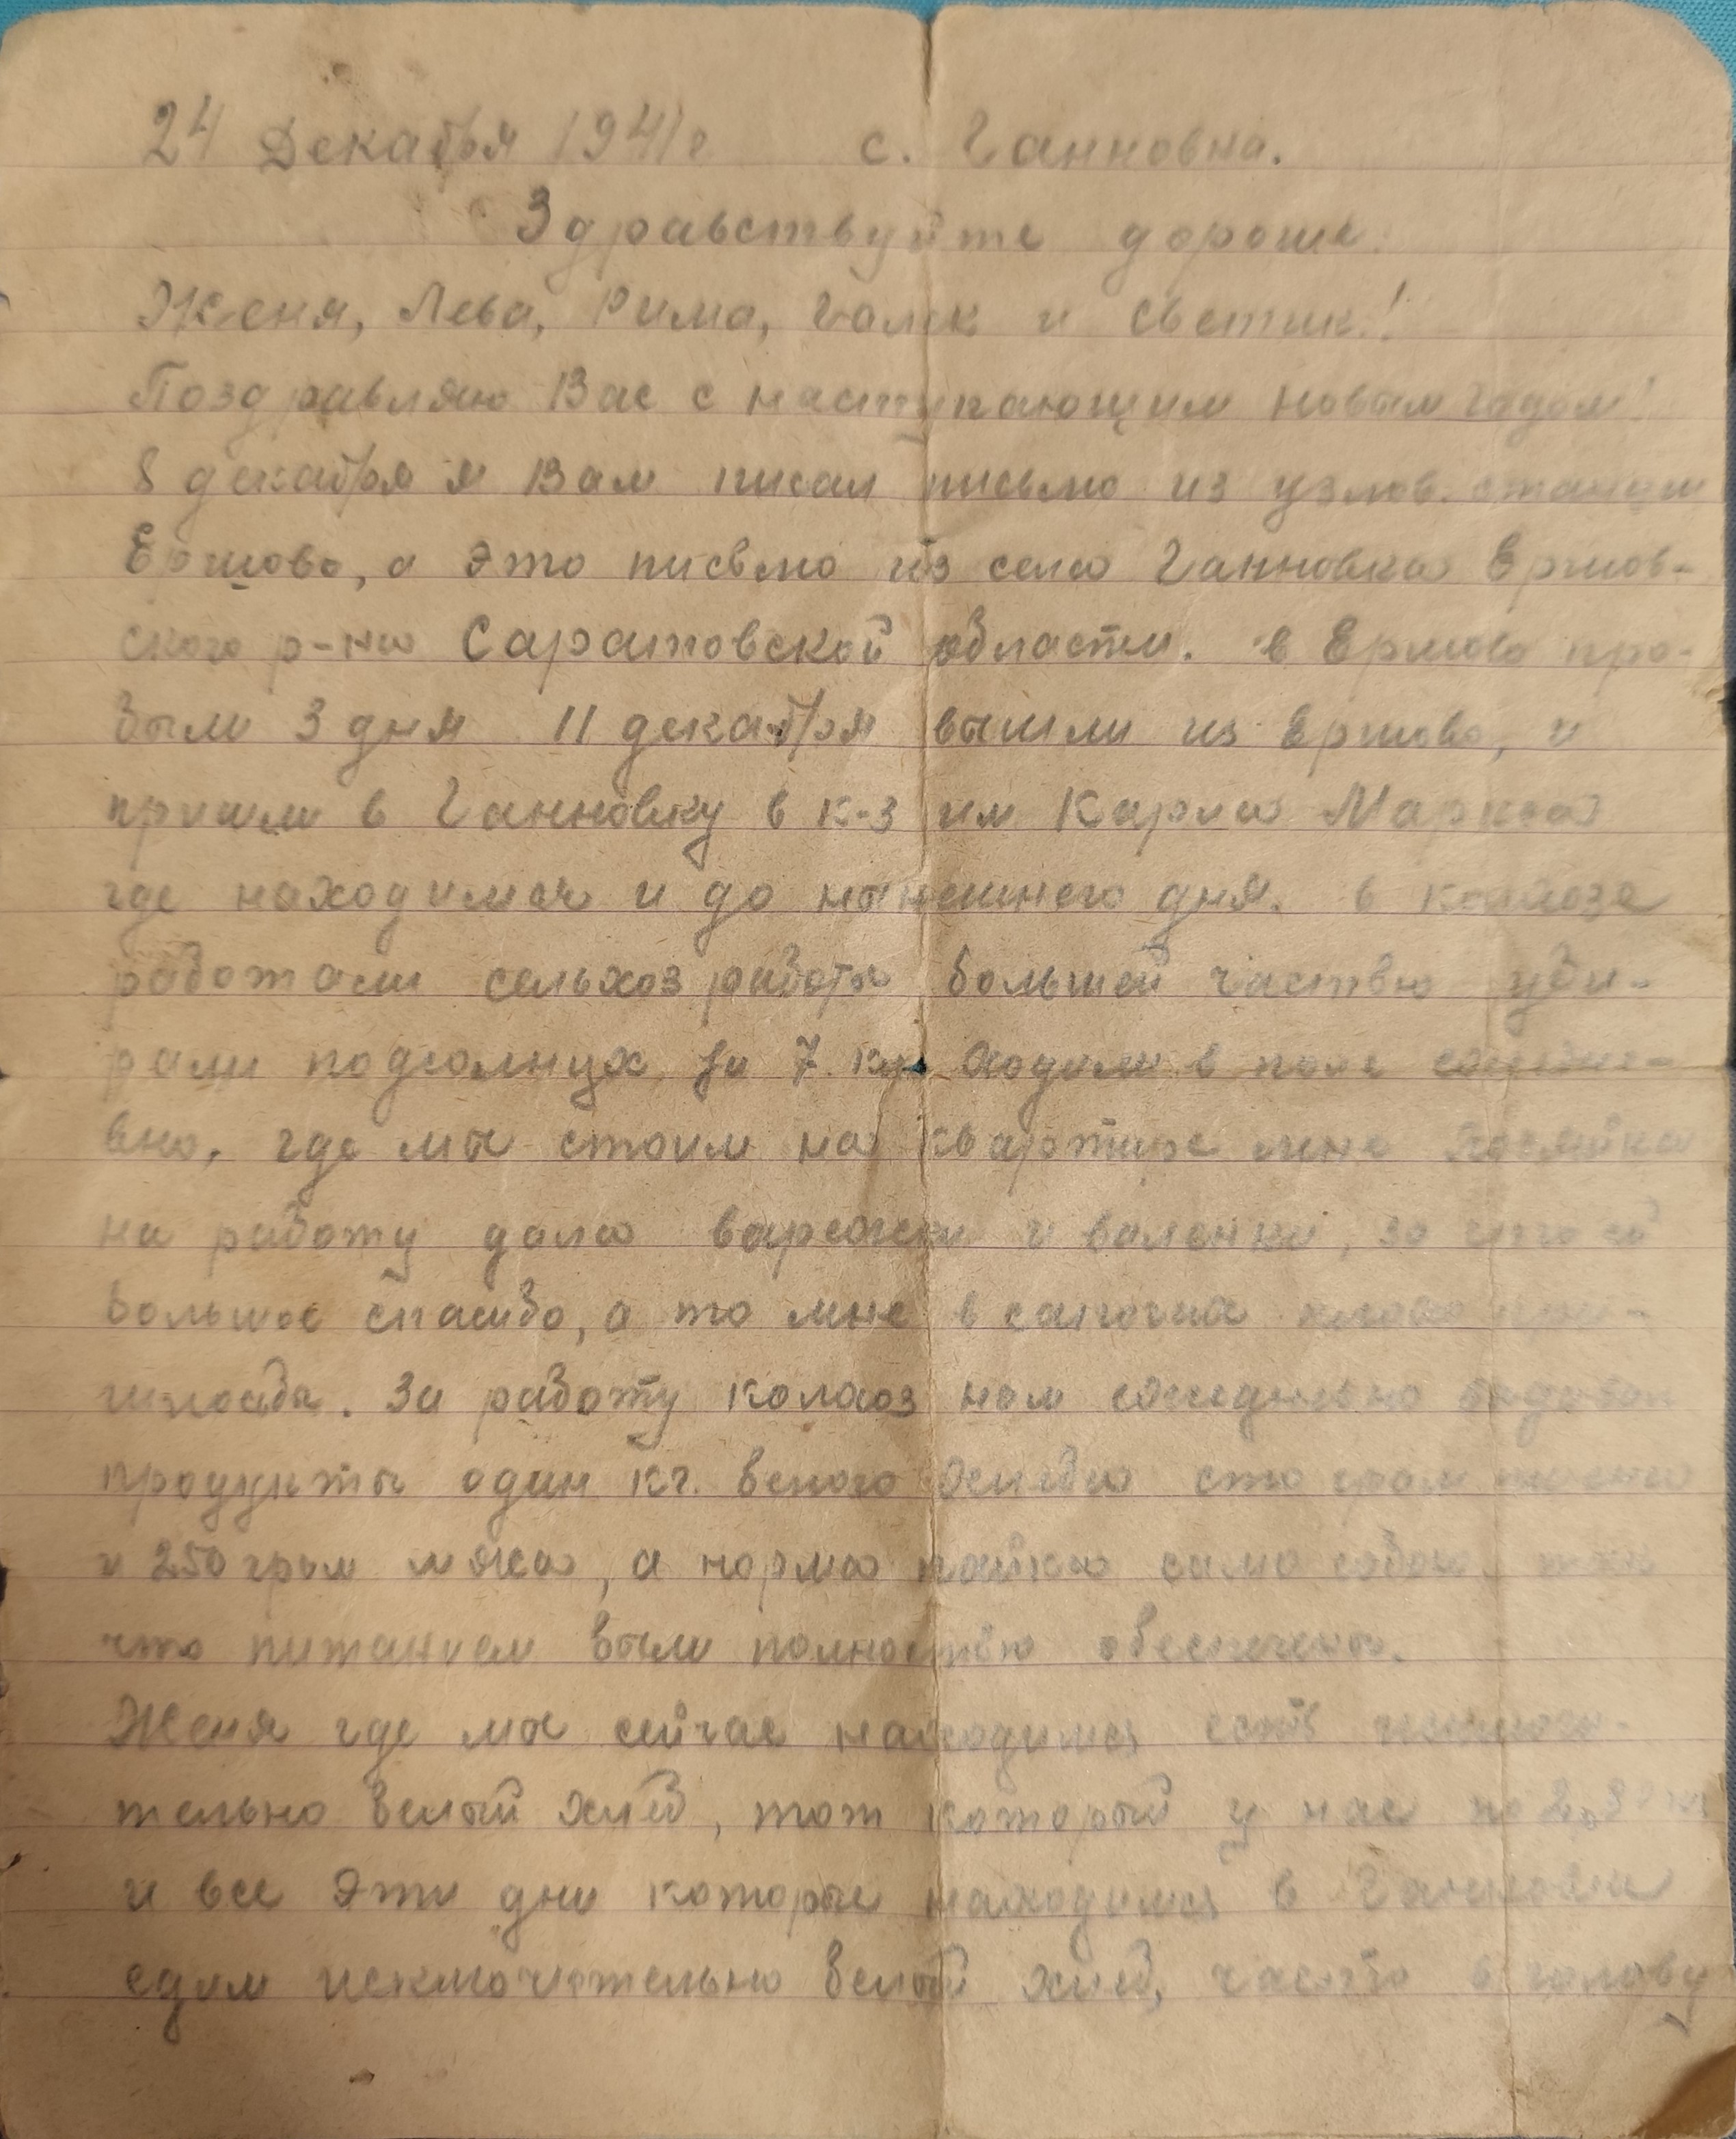 24 Декабря 1941г с. Ганновка.
Здравствуйте дорогие
Женя, Лева, Рима, Галик и Светик!
Поздравляю Вас с наступающим новым годом!
8 декабря я Вам писал письмо из узлов. станции
Ершово, а это письмо из села Ганновка Ершов-
ского р-на Саратовской области. в Ершово про-
были 3 дня 11 декабря вышли из Ершово, и
пришли в Ганновку в к-з им Карла Маркса
где находимся и до нынешнего дня. в колхозе
работали сельхоз работы большей частью уби-
рали подсолнух, за 7 км ходили в поле
вно, где мы стоим на квартире мне хозяйка
на работу дала варежки и валенки, за что ей
большое спасибо, а то мне в сапогах плохо при-
шлось бы. За работу колхоз нам ежедневно выдавал
продукты один кг. белого хлеба сто грам
и 250 грам мяса, а норма пайка само собою. так
что питанием были полностью обеспечены.
Женя где мы сейчас находимся есть исключи-
тельно белый хлеб, тот который у нас по
и все эти дни которые находимся в Ганновки
едим исключительно белый хлеб, часто в голову